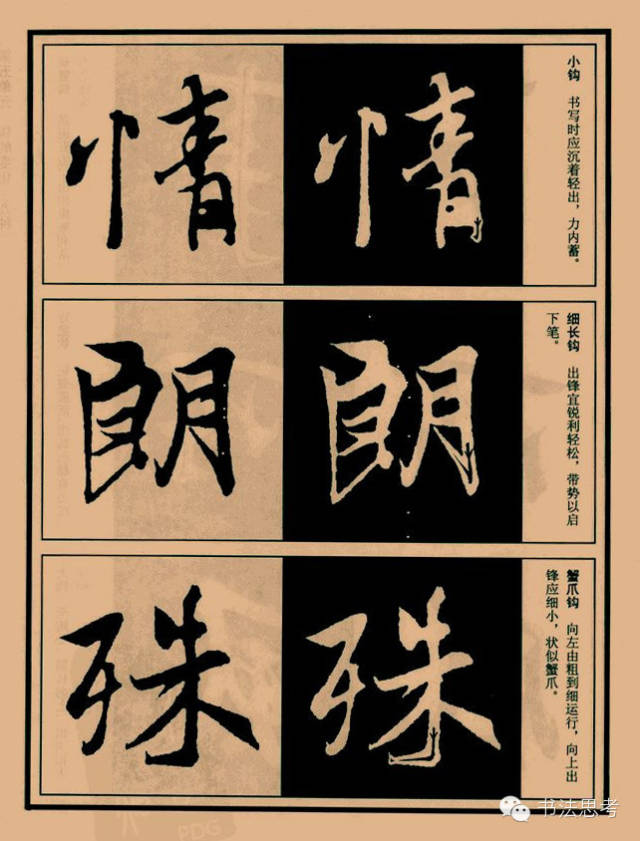 小钩 书写时应沉着轻出，力内蓄。
情 情
细长钩 出锋宜锐利轻松，带势以启
下笔。
朗 朗
蟹爪钩 向左由粗到细运行，向上出
锋应细小，状似蟹爪。
殊 殊
PDG
书法思考